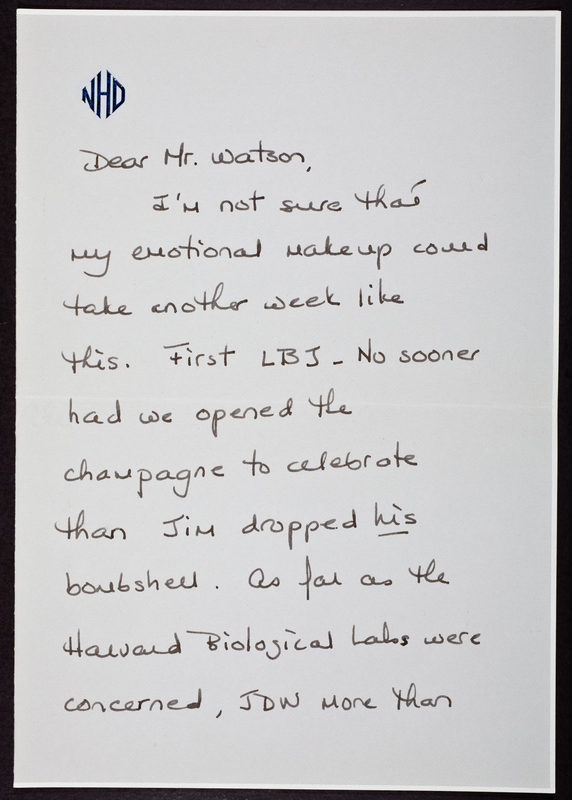 NHD
Dear Mr. Watson,
I'm not sure that
my emotional makeup could
take another week like
this. First LBJ - No sooner
had we opened the
champagne to celebrate
than Jim dropped his
bombshell. As far as the
Harvard Biological Labs were
concerned, JDW more than